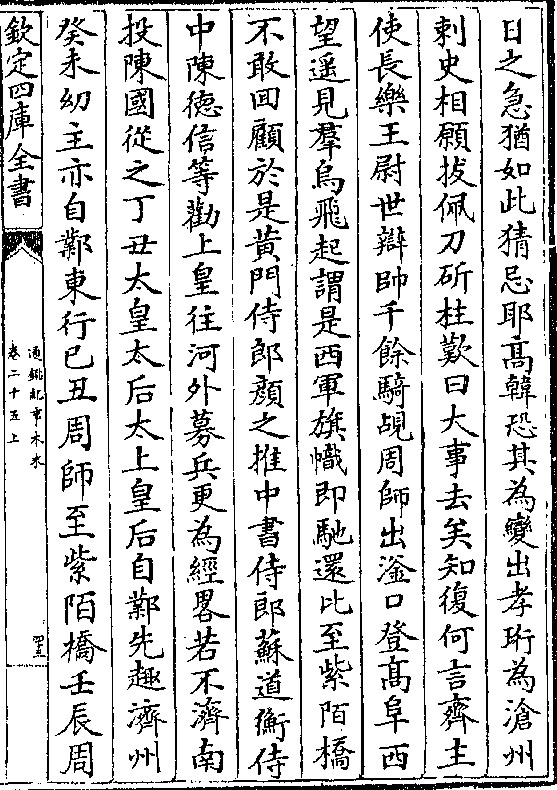 日之急猶如此猜忌耶高韓恐其為變出孝珩為滄州
刺史相願拔佩刀斫柱歎曰大事去矣知復何言齊主
使長樂王尉世辯帥千餘騎覘周師出滏口登高阜西
望遥見羣烏飛起謂是西軍旗幟即馳還比至紫陌橋
不敢回顧於是黄門侍郎顔之推中書侍郎蘇道衡侍
中陳徳信等勸上皇往河外募兵更為經畧若不濟南
投陳國從之丁丑太皇太后太上皇后自鄴先趣濟州
癸未幼主亦自鄴東行己丑周師至紫陌橋壬辰周
欽定四庫全書
通鑑紀事本末
卷二十五上